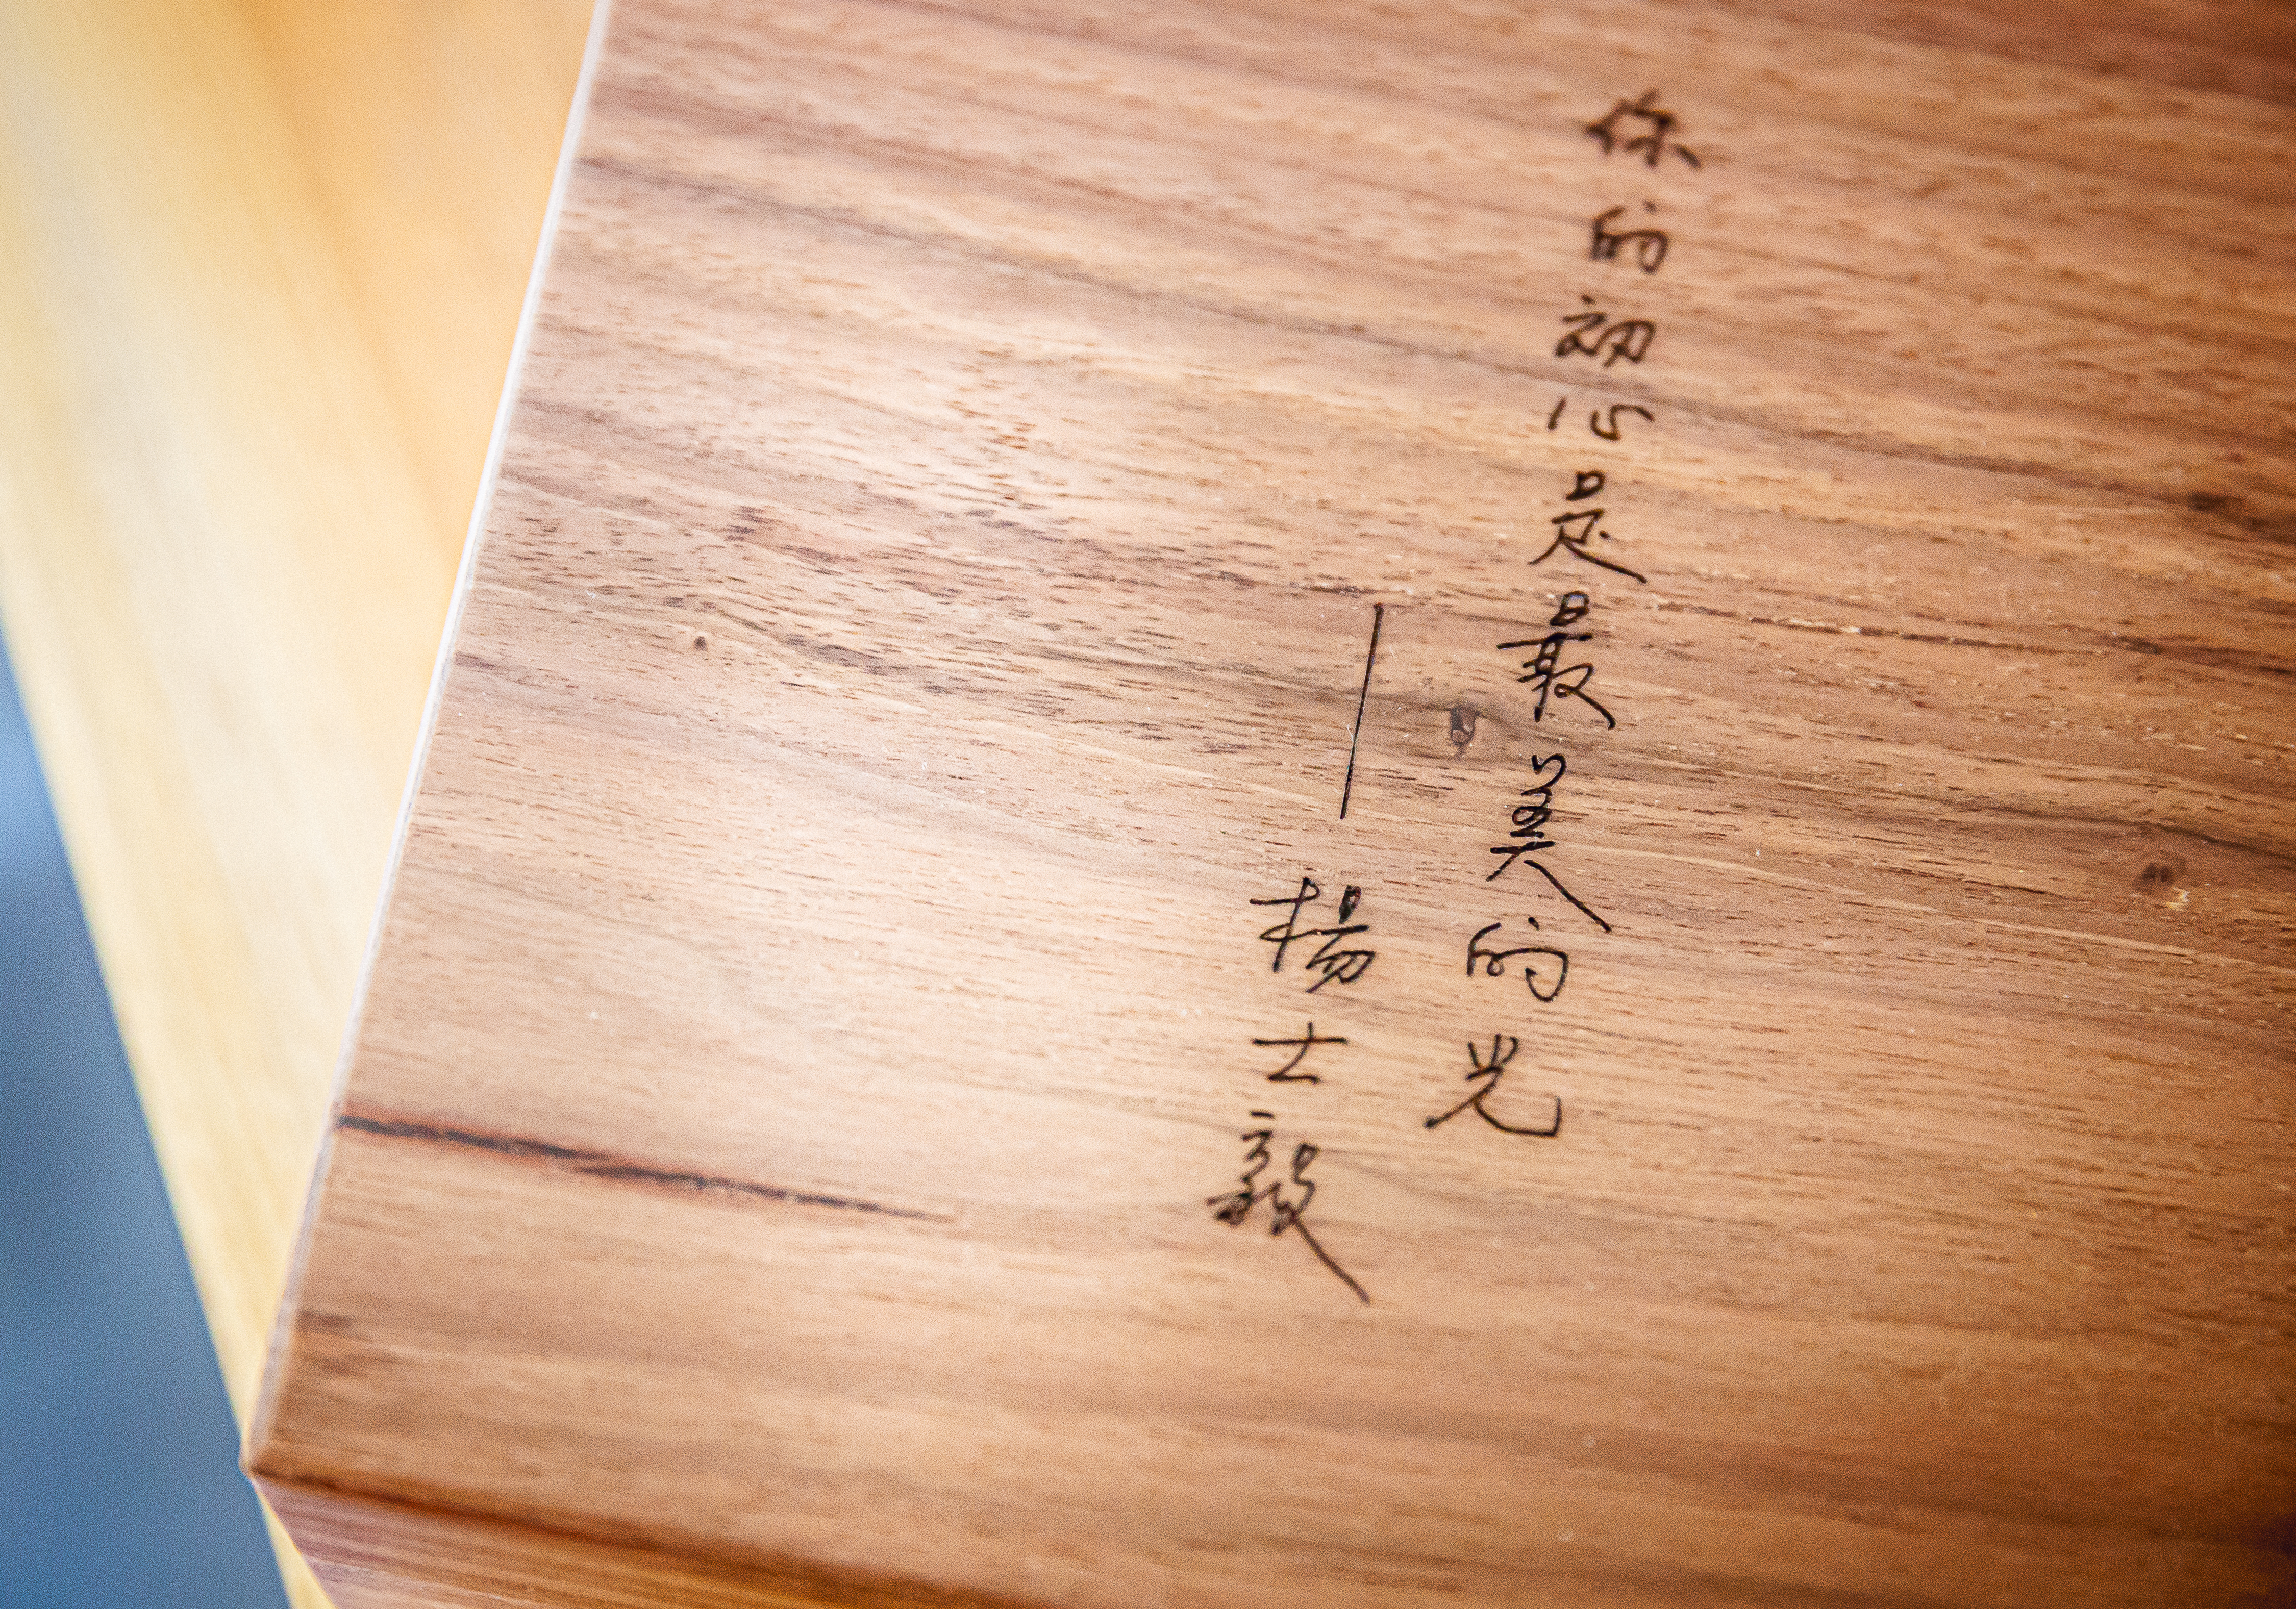 你的初心是最美的光
——楊士毅